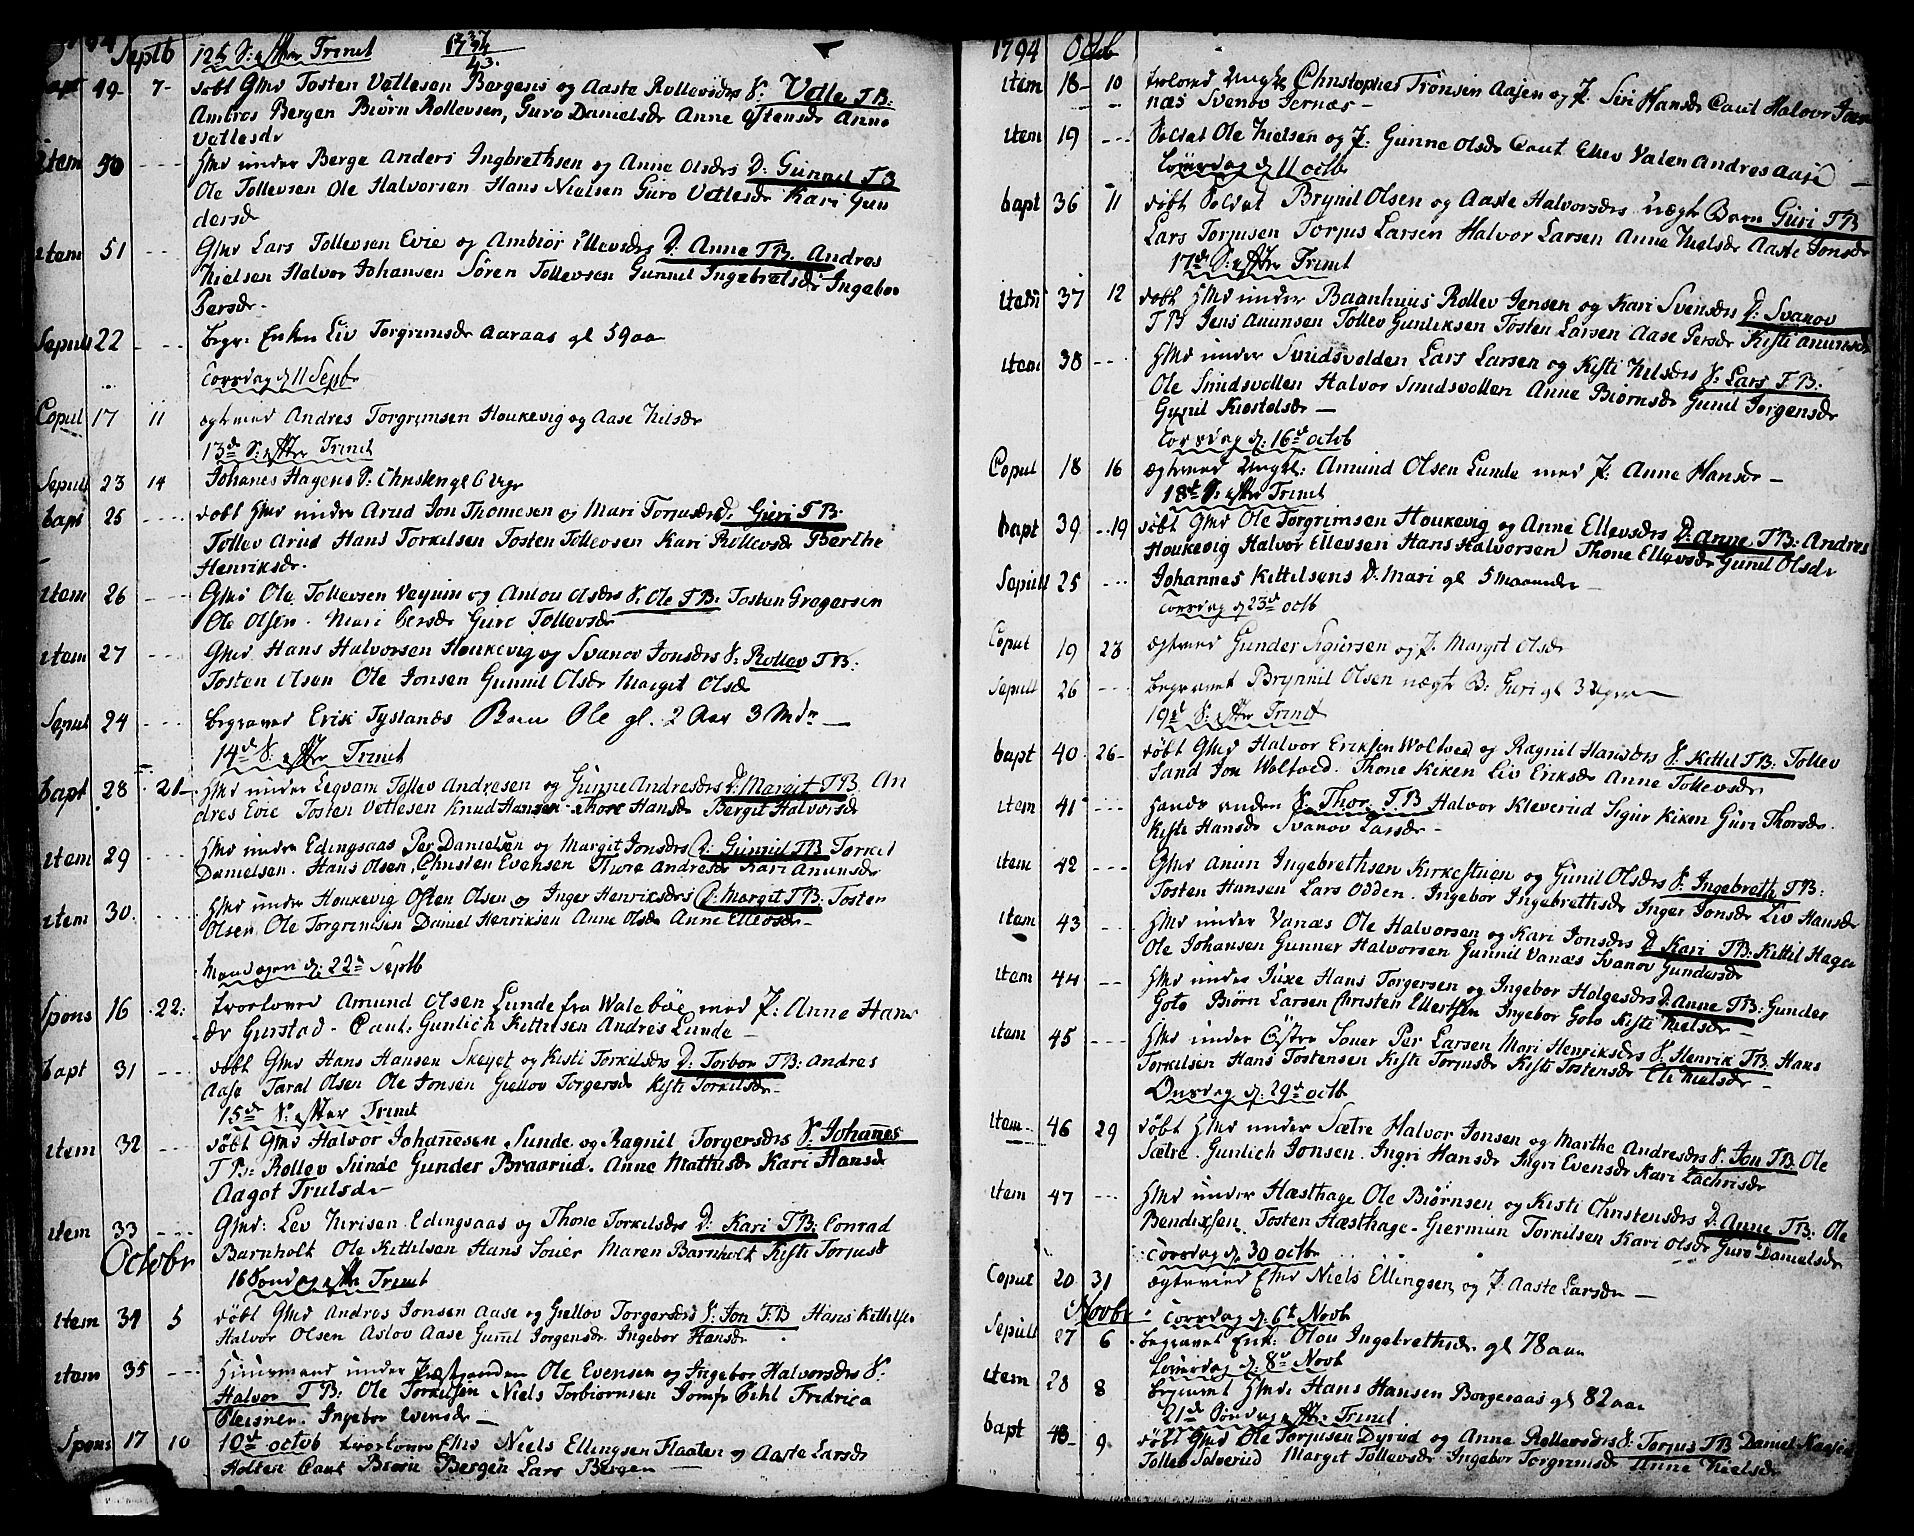 Septb 12t S: efter Trinit 1794
bapt 49 7 døbt Gmd Tosten Vetlesen Bergens og Aaste Rollevsdrs S. Vetle T B:
Ambros Bergen Biørn Rollevsen, Guro Danielsdr Anne Ostensdr Anne
Vetlesdr
item 50 Hmd under Berge Anders Ingbrethsen og Anne Olsdrs D: Gunnil T B
Ole Tollevsen Ole Halvorsen Hans Nielsen Guro Vetlesdr Kari Gun
dersdr
item 51 Gmd Lars Tollevsen Evie og Ambiør Ellevsdrs D. Anne T B. Andres
Nielsen Halvor Johansen Sören Tollevsen Gunnil Ingebretsdr Ingebor
Persdr.
Sepult 22 begr: Enken Liv Torgrimsdr Aaraas gl 59 aar
Torsdag d 11 Septb
Copul 17 11 egteviede Andres Torgrimsen Houkevig og Aase Nilsdr
13de S: efter Trinit
Sepult 23 14 Johanes Hagens S: Christen gl 6 Uger
bapt 25 døbt Hmd under Arud Jon Thomesen og Mari Torjusdrs D: Guri T B:
Tollev Arud Hans Torkilsen Tosten Tollevsen Kari Rollevsdr Berthe
Henriksdr.
item 26 Gmd Ole Tollevsen Vequm og Anlou Olsdrs S. Ole T B: Tosten Gregersen
Ole Olsen. Mari Persdr Guro Tollevsdr
item 27 Gmd Hans Halvorsen Houkevig og Svanov Jonsdrs S: Rollev T B:
Tosten Olsen Ole Jonsen Gunnil Olsdr Margit Olsdr
Sepul 24 begraved Erik Tyslands Barn Ole gl. 2 Aar 3 Mdr
14de S. efter Trinit
bapt 28 21 Hmd under Legvam Tollev Andresen og Gunne Andresdrs D: Margit T B An
dres Evie Tosten Vetlesen Knud Hansen Thore Hansdr Bergit Halvorsdr
item 29 Hmd under Edingsaas Per Danielsen og Margit Jonsdrs D: Gunnil T B Torkel
Danielsen. Hans Olsen, Christen Evensen Thore Andresdr Kari Anunsdr
item 30. Hmd under Houkevig Osten Olsen og Inger Henriksdrs D: Margit T B: Tosten
Olsen Ole Torgrimsen Daniel Henriksen Anne Olsdr Anne Ellevsdr
Mandagen d: 22de Septb
Spons 16 22: trolovede Amund Olsen Lunde fra Walebøe med P: Anne Hans
dr Gierstad. Caut: Gunlich Kittilsen Andres Lunde
bapt 31 døbt Gmd Hans Hansen Skeyet og Kisti Torkilsdrs D: Torbor T B: Andres
Aase Taral Olsen Ole Jonsen Giellov Torgersdr Kisti Torkilsdr
15de S. efter Trinit
item 32 døbt Gmd Halvor Johannesen Sunde og Ragnil Torgersdrs S. Johannes
T B: Rollev Sunde Gunder Braarud. Anne Mathisdr Kari Hansdr
Aagot Trulsdr
item 33 Gmd: Lev Nirisen Edingsaas og Thone Torkilsdrs D: Kari T B: Conrad
Barnholt Ole Kittilsen Hans Souer Maren Barnholt Kisti Torjusd
Octobr 16 Søndag efter Trinit
item 34 5 døbt Gmd Andres Jonsen Aase og Giellov Torgersdrs S: Jon T B Hans Kittilse
Halvor Olsen Aslov Aase Gunnil Jorgensdr Ingebor Hansdr
item 35 Huusmand under Præstranden Ole Evensen og Ingebor Halvorsdrs S:
Halvor T B: Ole Torkilsen Niels Torbiornsen Jomfr Fredrica
Pleisner. Ingebor Evensdr
Spons 17 10 10de Octob trolovede Niels Ellingsen Flaaten og Aaste Larsdr
Holten Caut Biørn Bergen Lars Bergen
1794 Octb
item 18 10 trolovd Ungkr Christopher Tronsen Aasen og P. Siri Hansdr Caut Halvor
næs Svenov Jernæs
item 19 Soldat Ole Nielsen og P: Gunne Olsdr Caut Ellev Valen Andres Aase
Løverdag d 11 octb
bapt 36 11 døbt Soldat Brynil Olsen og Aaste Halvorsdrs uægte Barn Guri T B
Lars Torjusen Torjus Larsen Halvor Larsen Anne Nielsdr Aaste Jonsdr
17de S: efter Trinit
item 37 12 døbt Hmd under Baanhuus Rollev Jensen og Kari Svensdrs D: Svanov
T B Jens Anunsen Tollev Gunliksen Tosten Larsen Aase Persdr Kisti Anunsdr
item 38 Hmd under Smidsvolden Lars Larsen og Kisti Nilsdrs S: Lars T B.
Ole Smidsvollen Halvor Smidsvollen Anne Biørnsdr Gunil Jorgensdr
Gunil Kiostelsdr
Torsdag d: 16de octob
Copul 18 16 ægteviede Ungk: Amund Olsen Lunde med P: Anne Hansdr
18de S. efter Trinit
bapt 39 19 døbt Gmd Ole Torgrimsen Houkevig og Anne Ellevsdrs D: Anne T B: Andres
Houkevig Halvor Ellevsen Hans Halvorsen Thone Ellevsdr Gunil Olsdr
Sepult 25 Johannes Kittilsens D. Mari gl 5 Maaneder
Torsdag d 23de octb
Copul 19 23 ægteviede Gunder Sigursen og P. Margit Olsdr
Sepult 26 begravet Brynnil Olsen uægte B: Guri gl 3 Uger
19de S: efter Trinit
bapt 40. 26 døbt Gmd Halvor Eriksen Woltved og Ragnil Hansdrs S. Kittel T B: Tollev
Sand Jon Woltved. Thone Kiken Liv Eriksdr Anne Tollevsdr
item 41 Sands enden S. Thor T B Halvor Kleverud Sigur Kiken Guri Thorsdr.
Kisti Hansdr Svanov Larsdr
item 42 Gmd Anun Ingebrethsen Kirkestuen og Gunil Olsdrs S. Ingebreth T B:
Tosten Hansen Lars Odden. Ingebor Ingebrethsdr Inger Jonsdr Liv Hansdr
item 43 Hmd under Vanæs Ole Halvorsen og Kari Jonsdrs D. Kari T B: Kittil Hagen
Ole Johansen Gunner Halvorsen Gunnil Vanæs Svanov Gundersdr
item 44 Hmd under Juxe Hans Torgersen og Ingebor Holgesdrs D: Anne T B: Gunder
Goto Biørn Larsen Christen Ellertsen Ingebor Goto Kisti Nielsdr
item 45 Hmd under Østre Souer Per Larsen Mari Henriksdrs S. Henrik T B: Hans
Torkilsen Hans Tostensen Kisti Torjusdr Kisti Tostensdr Eli Nielsdr
Onsdag d: 29de octb
item 46 29 døbt Hmd under Sætre Halvor Jonsen og Marthe Andresdrs S. Jon T B Ole
Sætre. Gunlich Jonsen. Ingri Hansdr Ingri Evensdr Kari Zachrisdr
item 47 Hmd under Hæsthage Ole Biørnsen og Kisti Christensdrs D: Anne T B: Ole
Bendixsen Tosten Hæsthage Giermun Torkilsen Kari Olsdr Guro Danielsdr
Torsdag d. 30 octb
Copul 20 31 ægteviede Niels Ellingsen og P. Aaste Larsdr
Novbr Torsdag d: 6t Novb
Sepult 27 6 begravet Enk: Olou Ingebrethsdr gl 78 aar
Løverdag d. 8de Novb
item 28 8 begravet Hmd: Hans Hansen Borgesaas gl 82 aar
21de Søndag eft: Trinit
bapt 48 9 døbt Gmd Ole Torjusen Dyrud og Anne Rollevsdrs S. Torjus T B Daniel
Tollev Solverud Margit Tollevsdr Ingebor Torgrimsdr Anne Nielsdr